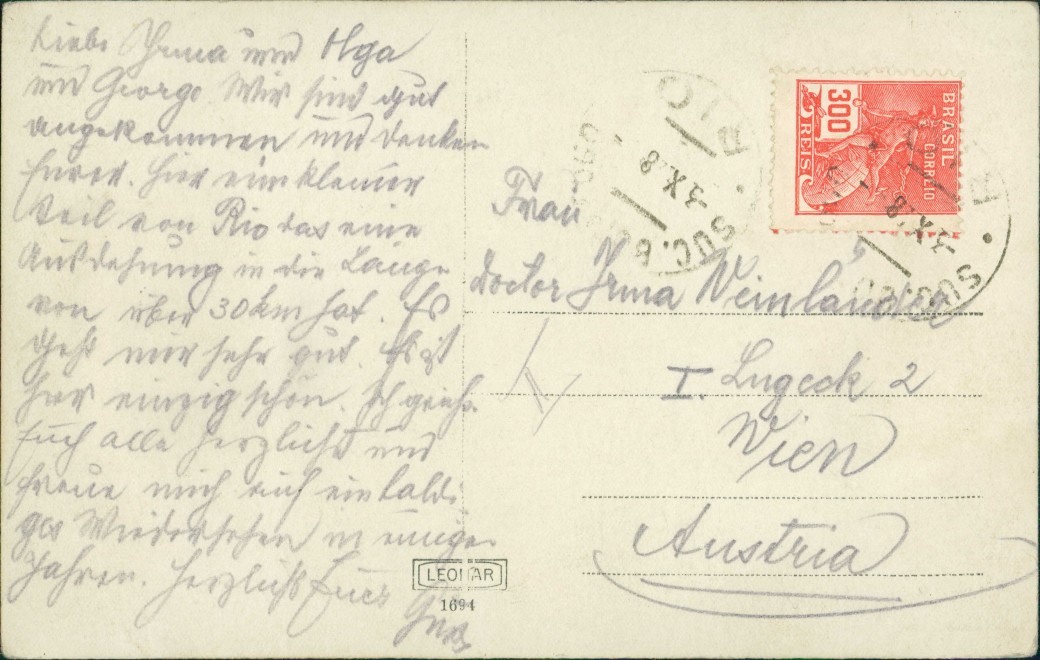 Liebe Irma und Olga
und George. Wir sind gut
angekommen und denken
Eurer. Hier ein kleiner
Teil von Rio das eine
Ausdehnung in die Länge
von über 30 km hat. Es
geht mir sehr gut. Es ist
hier einzig schön. Ich grüße
Euch alle herzlichst und
freue mich auf ein baldi
ges Wiedersehen in einigen
Jahren. Herzlichst Euer
LEONAR
1694
BRASIL
CORREIO
300
REIS
RIO
SUC.
-3.X.
8
RIO
SUC.
-3.X.
8
Frau
Doctor Irma Weinländer
I. Lugeck 2
Wien
Austria